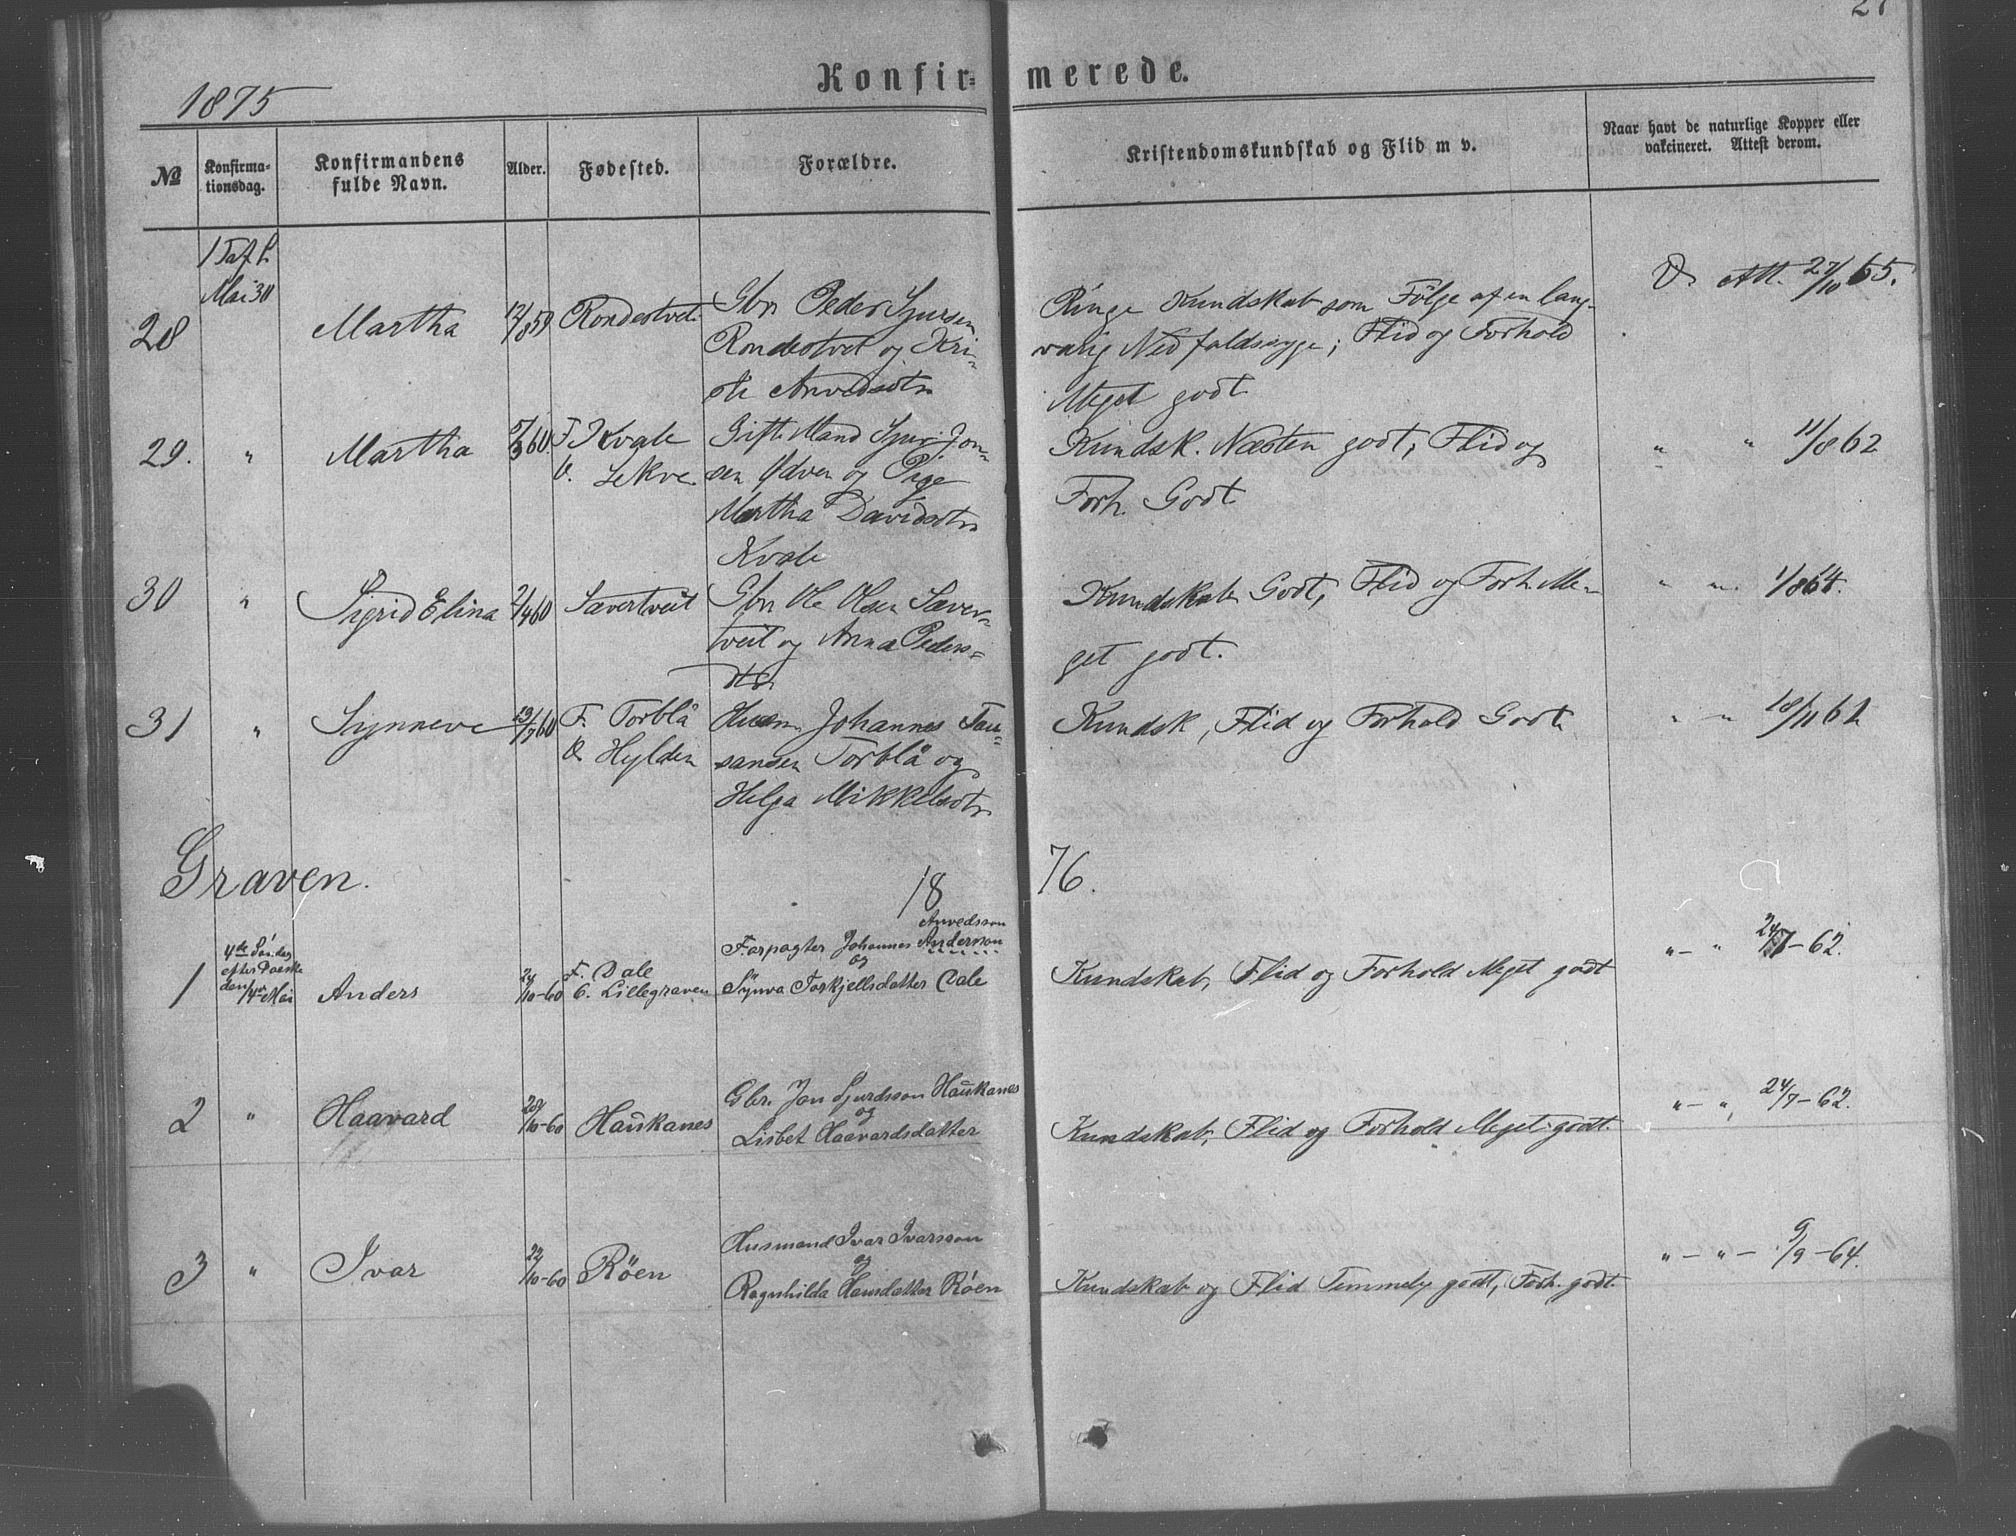 27
1875
Konfir= merede.
№
Konfirma-
tionsdag.
Konfirmandens
fulde Navn.
Alder.
Fødested.
Forældre.
Kristendomskundskab og Flid m v.
Naar havt de naturlige Kopper eller
vakcineret. Attest derom.
Mai 30
28
Martha
12/8 59
Rondestveit
Gbr Peder Sjursen
Rondestvet og Kri-
sti Arvedsdtr
Ringe Kundskab som Følge af en lang-
varig Nedfaldssyge; Flid og Forhold
Meget godt
V. Att. 27/10 65.
29. " Martha
5/3 60.
F. Kvale
O. Lekve.
Gift Mand Sjur Jon-
sen Ødven og Pige
Martha Davidsdtr
Kvale
Kundsk. Næsten godt; Flid og
Forh. Godt
" " 11/8 62
30 " Sigrid Elina
2/4 60
Sævertveit
Gbr Ole Olsen Sæver-
tveit og Anna Peders=
dtr
Kundskab Godt; Flid og Forh. Me-
get godt.
" " 1/8 64.
31 " Synneve
23/7 60
F. Torblå
O. Hylden
Husm Johannes Tor-
sansen Torblå og
Helga Mikkelsdtr
Kundsk, Flid og Forhold Godt
" " 10/11 62
Graven.
18 76.
1
4de Søndag
efter Paaske
den 14de Mai
Anders
24/10-60
F. Dale
O. Lillegraven
Arvedsson
Forpagter Johannes Anderson
og
Synva Torkjellsdatter Dale
Kundskab, Flid og Forhold Meget godt
"-" 24/7-62.
2 " Haavard
20/10-60
Haukanes
Gbr. Jon Sjurdsson Haukanes
og
Lisbet Haavardsdatter
Kundskab, Flid og Forhold Meget godt.
"-", 24/7-62.
3 " Ivar
22/10-60
Røen
Husmand Ivar Ivarsson
og
Ragnhilda Hansdatter Røen
Kundskab og Flid Temmelig godt, Forh. godt.
"-"- 9/9-64.